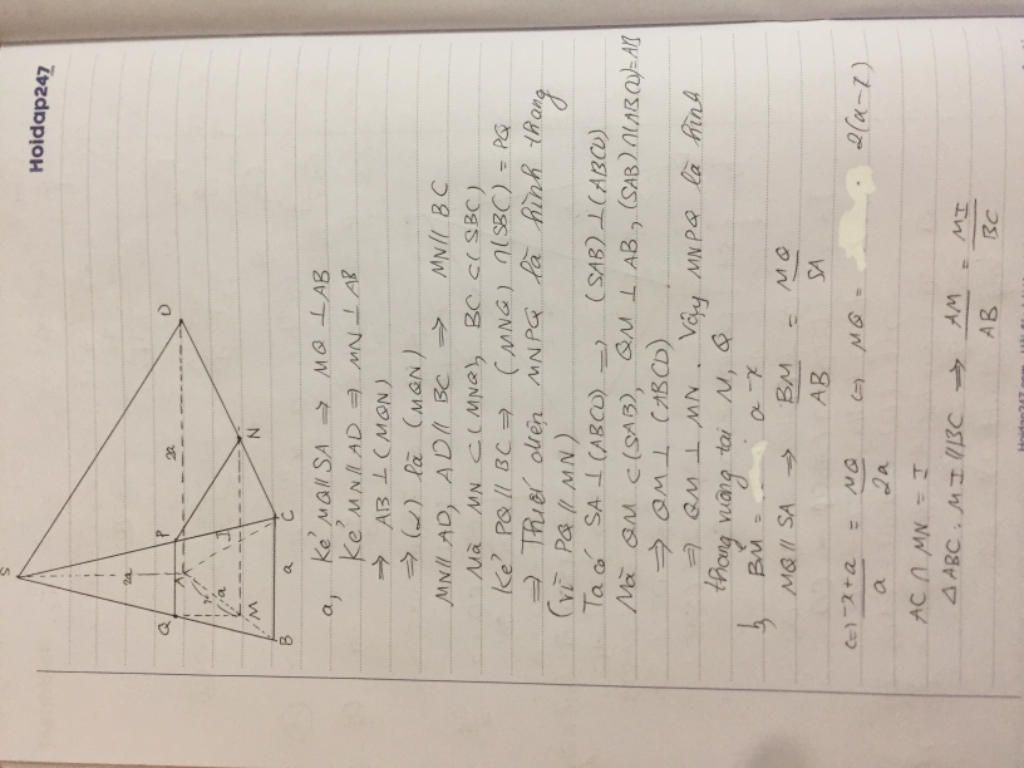 Hoidap247
S
2a
Q
P
A
2a
D
x
a
I
M
N
B
a
C
a, Kẻ MQ // SA => MQ ⊥ AB
Kẻ MN // AD => MN ⊥ AB
=> AB ⊥ (MQN)
=> (α) là (MQN)
MN // AD, AD // BC => MN // BC
Mà MN ⊂ (MNQ), BC ⊂ (SBC)
Kẻ PQ // BC => (MNQ) ∩ (SBC) = PQ
=> Thiết diện MNPQ là hình thang
(vì PQ // MN)
Ta có SA ⊥ (ABCD) => (SAB) ⊥ (ABCD)
Mà QM ⊂ (SAB), QM ⊥ AB, (SAB) ∩ (ABCD) = AB
=> QM ⊥ (ABCD)
=> QM ⊥ MN. Vậy MNPQ là hình
thang vuông tại M, Q
b, BM = a - x
MQ // SA => BM/AB = MQ/SA
(=) -x+a/a = MQ/2a (=) MQ = 2(a-x)
AC ∩ MN = I
Δ ABC: MI // BC -> AM/AB = MI/BC